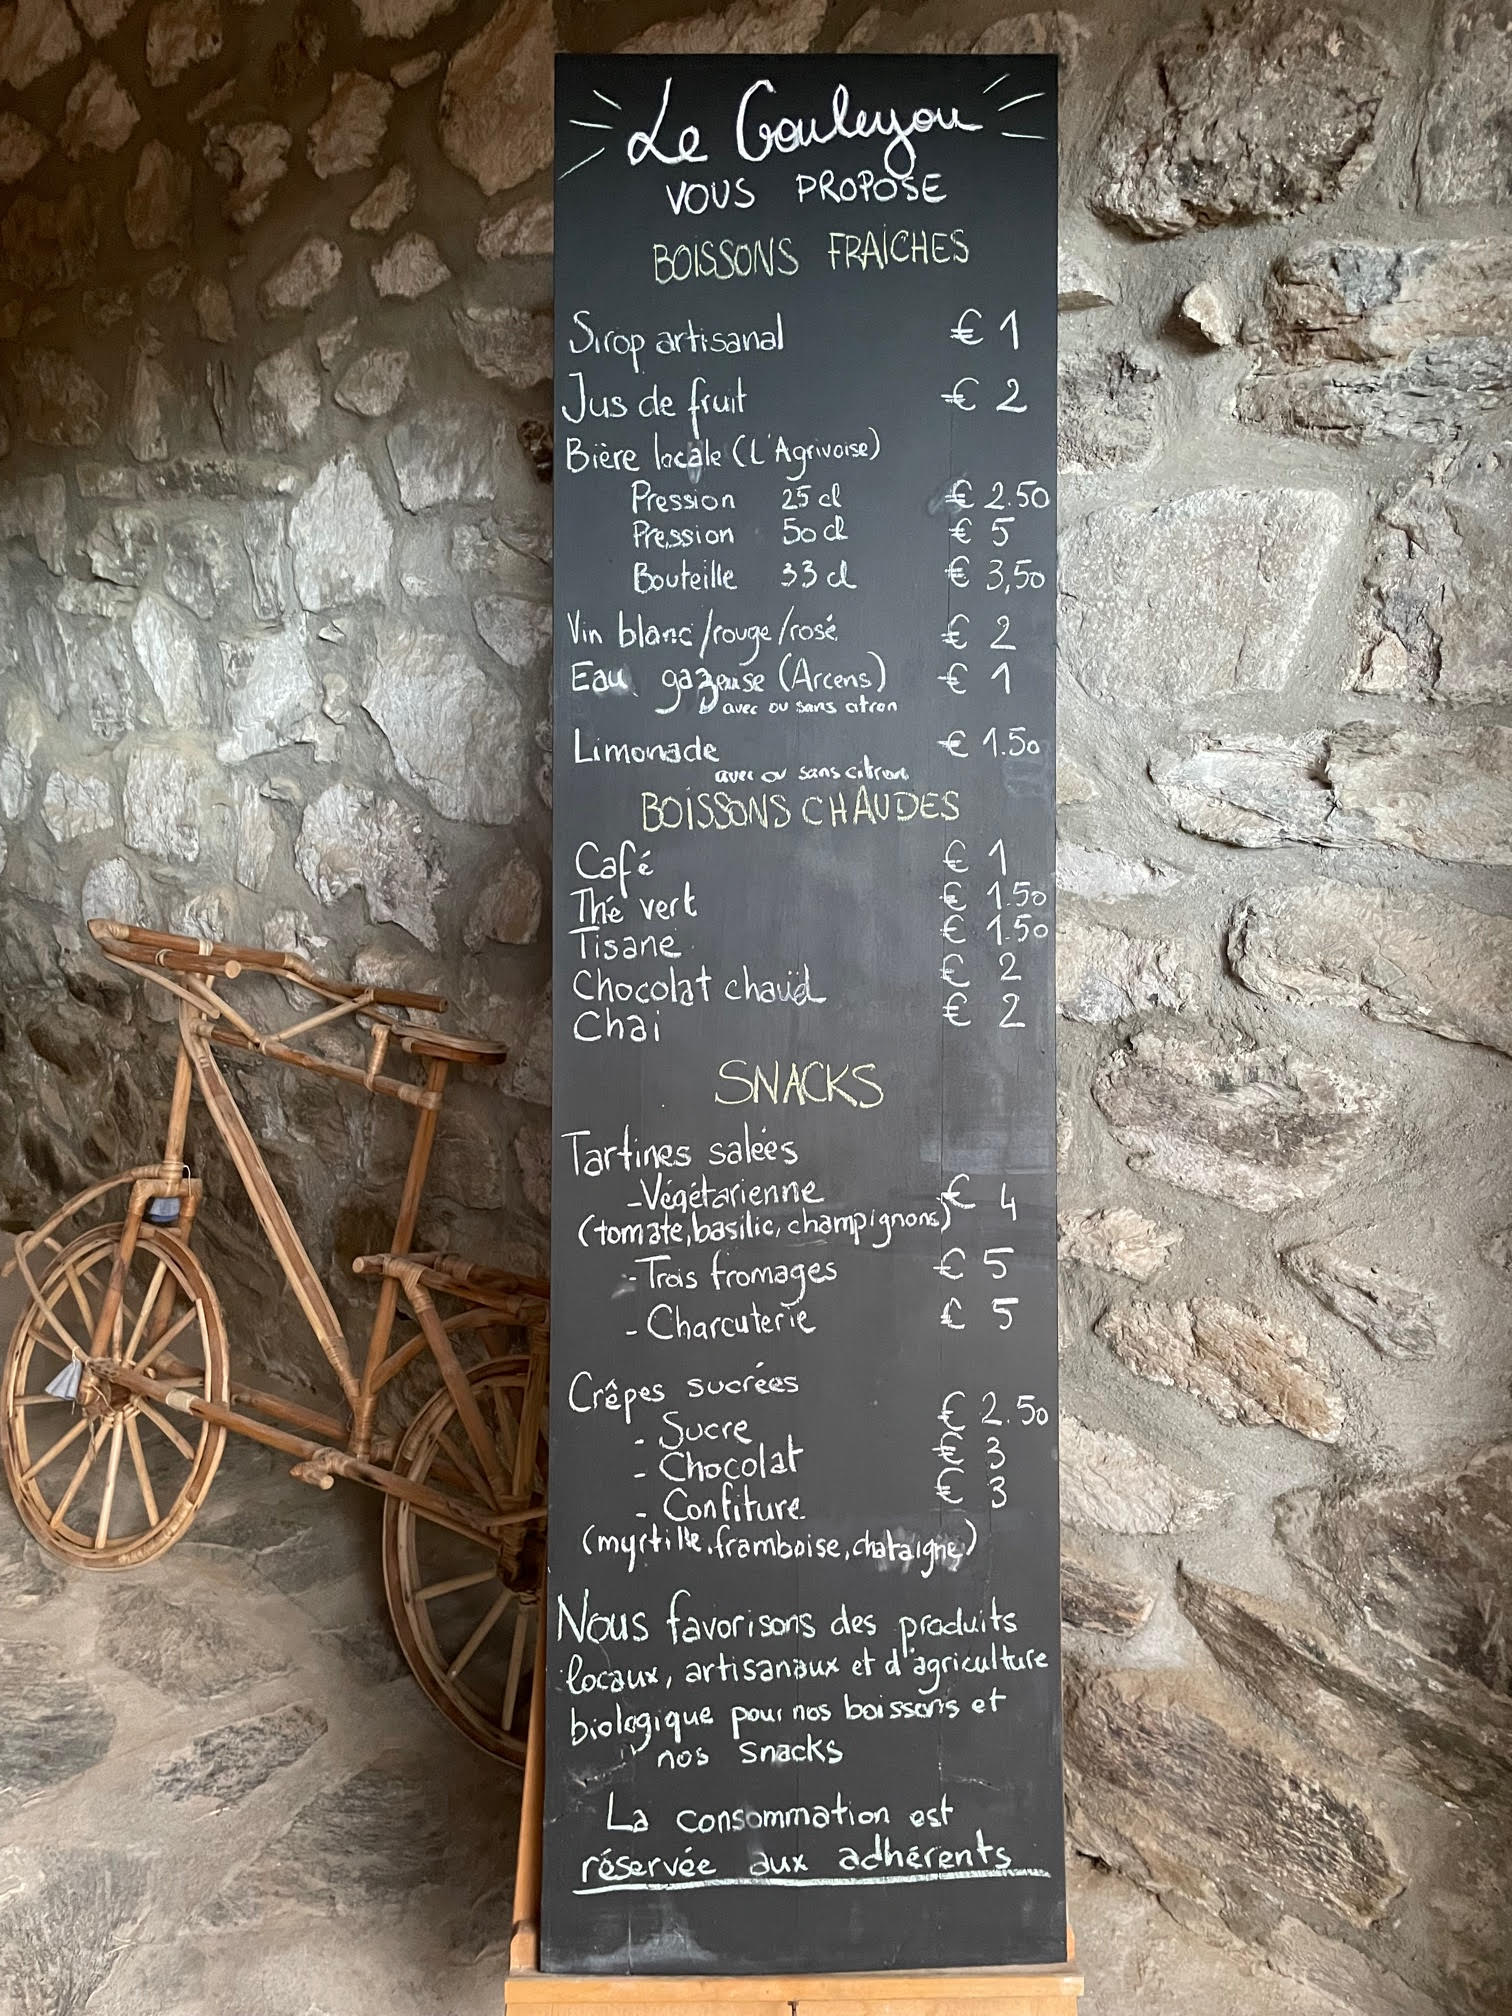 Le Gouleyou
VOUS PROPOSE
BOISSONS FRAICHES
Sirop artisanal € 1
Jus de fruit € 2
Bière locale (L'Agrivoise)
Pression 25 cl € 2.50
Pression 50 cl € 5
Bouteille 33 cl € 3,50
Vin blanc/rouge/rosé € 2
Eau gazeuse (Arcens) € 1
avec ou sans citron
Limonade € 1.50
avec ou sans citron
BOISSONS CHAUDES
Café € 1
Thé vert € 1.50
Tisane € 1.50
Chocolat chaud € 2
Chai € 2
SNACKS
Tartines salées
- Végétarienne € 4
(tomate, basilic, champignons)
- Trois fromages € 5
- Charcuterie € 5
Crêpes sucrées
- Sucre € 2.50
- Chocolat € 3
- Confiture € 3
(myrtille, framboise, chataigne)
Nous favorisons des produits
locaux, artisanaux et d'agriculture
biologique pour nos boissons et
nos snacks
La consommation est
réservée aux adhérents